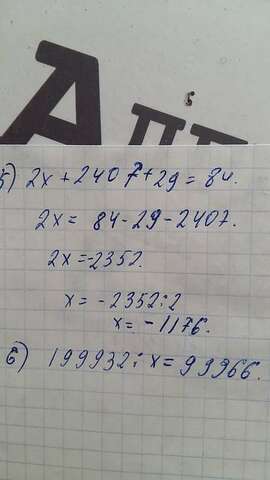 5) 2x + 2407 + 29 = 84.
2x = 84 - 29 - 2407.
2x = -2352.
x = -2352 : 2
x = -1176.
6) 199932 : x = 99966.